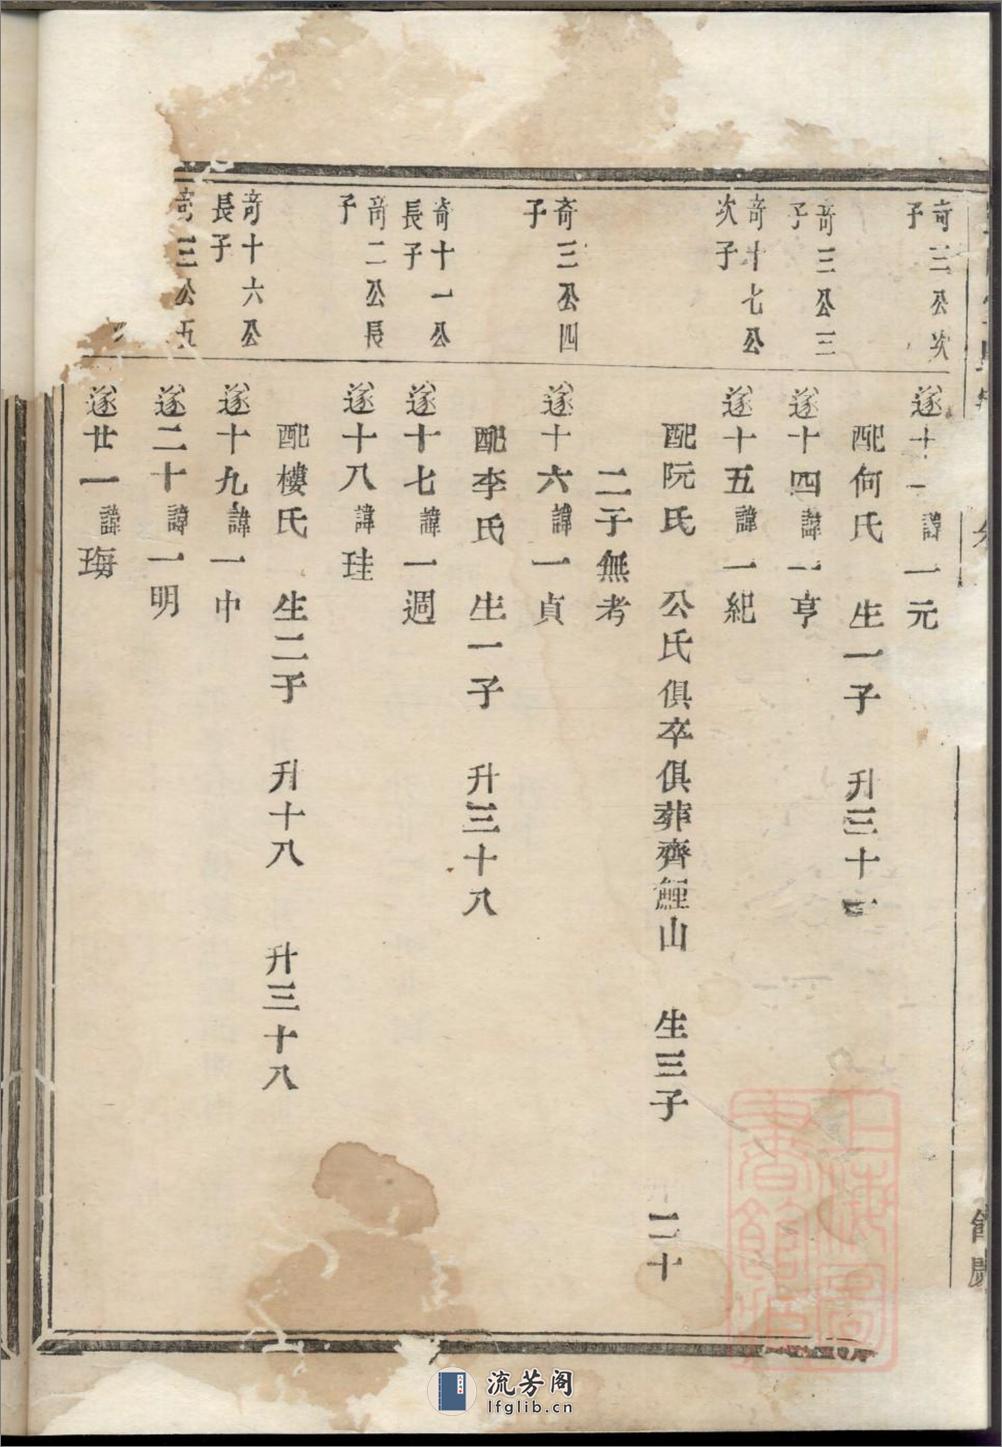 奇三公次子
遂十一諱一元
配何氏 生一子 升三十一
奇三公三子
遂十四諱一亨
奇十七公次子
遂十五諱一紀
配阮氏 公氏俱卒俱葬齊鯉山 生三子 二十
二子無考
奇三公四子
遂十六諱一貞
配李氏 生一子 升三十八
奇十一公長子
遂十七諱一週
奇二公長子
遂十八諱珪
配樓氏 生二子 升十八 升三十八
奇十六公長子
遂十九諱一中
奇三公五
遂二十諱一明
遂廿一諱珻
上海圖書館藏
流芳阁
lfglib.cn